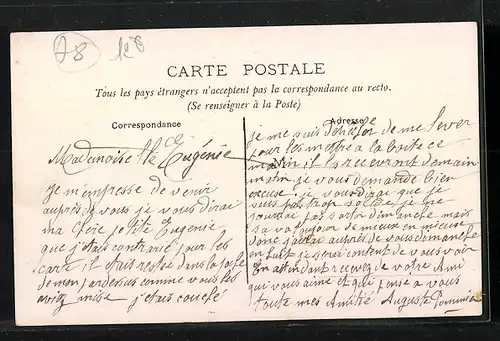 78
CARTE POSTALE
Tous les pays étrangers n'acceptent pas la correspondance au recto.
(Se renseigner à la Poste)
Correspondance
Adresse
Mademoiselle Eugénie
je m'empresse de venir
auprès de vous je vous dirai
ma chere petite Eugenie
que j'etais contrarié pour les
carte il etait resté dans la poche
de mon pardessus comme vous les
aviez mise j'etais couché
je me suis de me lever
pour les mettre a la boite ce
matin il les recevront demain
matin je vous demande bien
excuse je vous dirai que je
suis pas trop solide je ne
pas sortir dimanche mais
sa va toujour de mieux en mieux
donc auprès de vous dimanche
en fait je serai content de vous voir
En attendant recevez de votre Ami
qui vous aime et qui pense a vous
toute mes Amitié Auguste